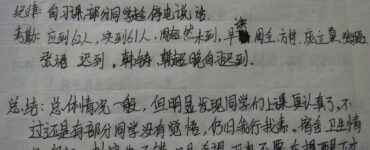 纪律: 自习课,部分同学趁停电说话.
考勤: 应到62人, 实到61人, 周超然未到, 早读 周全. 方村. 庞迎昊 张路
张语 迟到. 韩婧. 韩超 晚自迟到.
总结: 总体情况一般, 但明显发现同学们上课更认真了, 不
过还是有部分同学没有觉悟, 仍旧我行我素. 宿舍卫生情